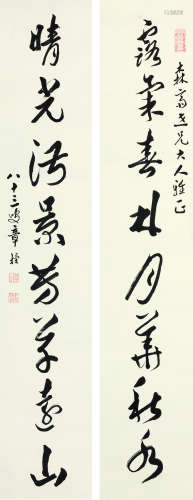 森齋仁兄大人雅正
露氣春林月華秋水
晴光淑景芳草遠山
八十三叟章梫